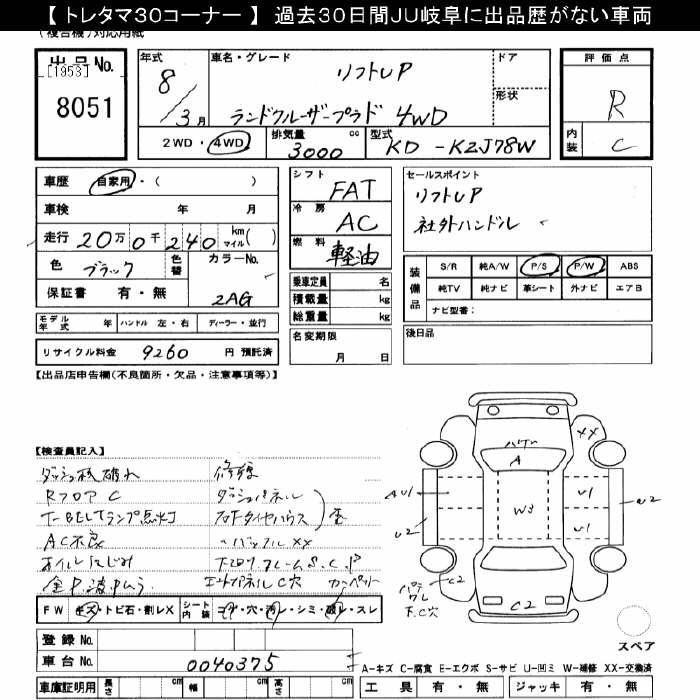 【 トレタマ30コーナー 】 過去30日間JU岐阜に出品歴がない車両
(複合機)対応用紙
出品No.
[1953]
8051
年式
8
3月
車名・グレード
リフトUP
ランドクルーザープラド 4WD
ドア
形状
2WD・4WD
排気量
3000
cc
型式
KD - KZJ78W
評価点
R
内装
C
車歴
自家用・( )
車検 年 月
走行 20万0千240 km マイル( )
色 ブラック
色替
カラーNo.
2AG
保証書 有・無
シフト
FAT
冷房
AC
燃料
軽油
乗車定員 名
積載量 kg
総重量 kg
名変期限
月 日
セールスポイント
リフトUP
社外ハンドル
装備品
S/R 純A/W P/S P/W ABS
純TV 純ナビ 革シート 外ナビ エアB
ナビ型番:
後日品
モデル年式 年 ハンドル 左・右 ディーラー・並行
リサイクル料金 9260 円 預託済
【出品店申告欄(不良箇所・欠品・注意事項等)】
【検査員記入】
ダッシュ板破れ
RフロアC
T-BELTランプ点灯
AC不良
オイルにじみ
修復
ダッシュパネル
右Fタイヤハウス
バックルXX
エンドパネルC穴
XX
A
W3
U1
U1
U2
U2
C2
C2
FW キズ・トビ石・割レX
シート内装 コゲ・穴・汚レ・シミ・破レ・スレ
登録No.
車台No. 0040375
車庫証明用 長さ cm 幅 cm 高さ cm
スペア
A-キズ C-腐食 E-エクボ S-サビ U-凹ミ W-補修 XX-交換済
工具 有・無 ジャッキ 有・無